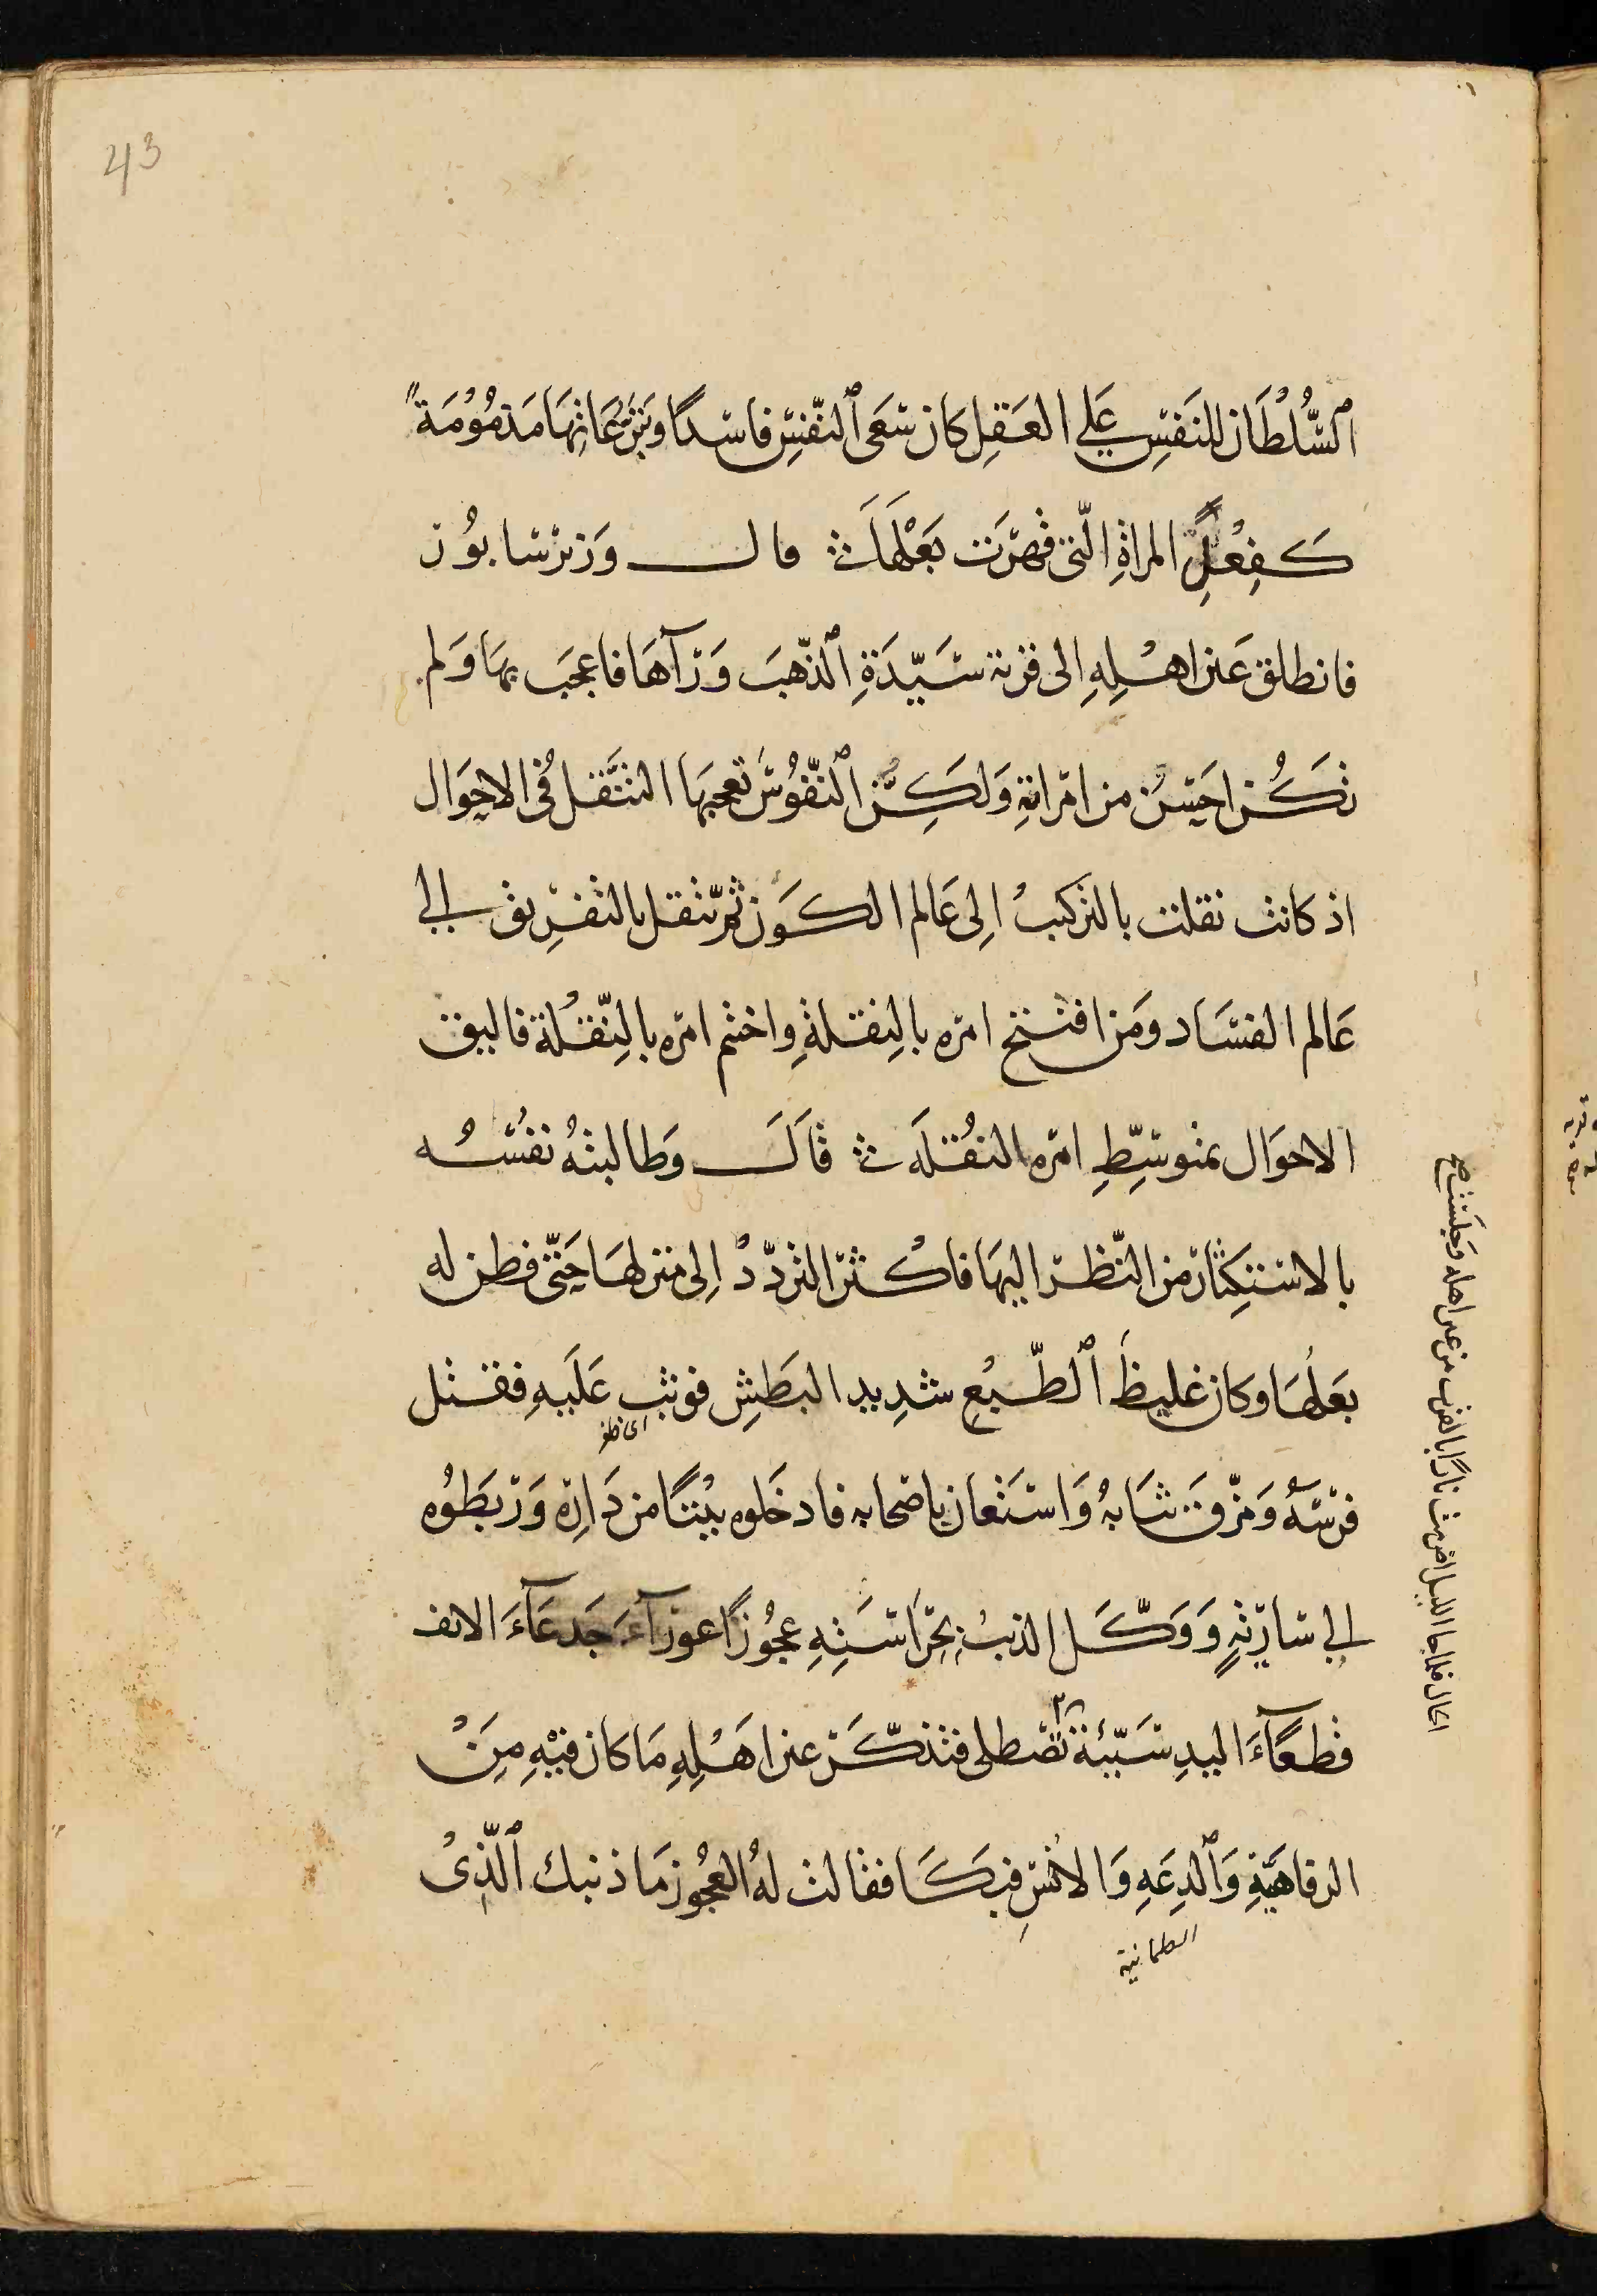 43
السُّلْطَان للنَفسِ عَلى العَقلِ كَان سَعَى ٱلنّفسِ فاسدًا وَتَبَرُّعَاتِهَا مَذمُومَةً
كَفِعْلِ المراةِ الّتى قهرَت بَعْلَهَا قال وَزير سابُور
فانطلق عَن اهْلِهِ الى قرية سَيّدَةِ ٱلذّهبَ وَرَآهَا فاعجَب بهَا وَلم
تَكُن احَسَن من امراتهِ وَلَكِنّ ٱلنّفُوسَ تعجبهَا التنَّقل فى الاحوَال
اذ كانت نقلت بالتركيبُ اِلى عَالم الكَون ثمّ تنقل بالتفرِيق الى
عَالم الفسَاد وَمَن افتتح امره بالنِقلةِ واختم امره بالنِّقْلة فاليق
الاحوَال بمتوسِّطِ امره النُقلَة قَالَ وَطالبتهُ نفسُه
بالاستكِثار من النّظر اليهَا فاكْثر التردّدْ اِلى منزلهَا حَتّى فطن له
بَعلُهَا وكان غليظَ ٱلطّبْعِ شدِيد البَطشِ فوثب عَلَيهِ فقتل
اى ظفر
فرسَهُ وَمزّقَ ثيَابهُ وَاستَعان باصحابه فادخَلوه بيْتًا من دَارِه وَرَبَطُوه
الى سَارِيَةٍ وَوَكَّل الذيبُ بِحِرَاسَتِهِ عجُوزًا عورآءَ جَدعَآءَ الانف
قطعَآءَ اليدِ سَيّئة تصْطلى فتذكّرَ عن اهَلِهِ مَا كان فيْهِ مِنْ
الرفاهيَّةِ وَٱلدِعَهِ وَالانسِ فبَكَا فقالت لهُ العجُوز مَا ذنبك ٱلّذِىْ
الطمانية
الحال فلما جا الليل اضرمت نارًا بالقرب من عن اهله وَجَلسَتْ صح